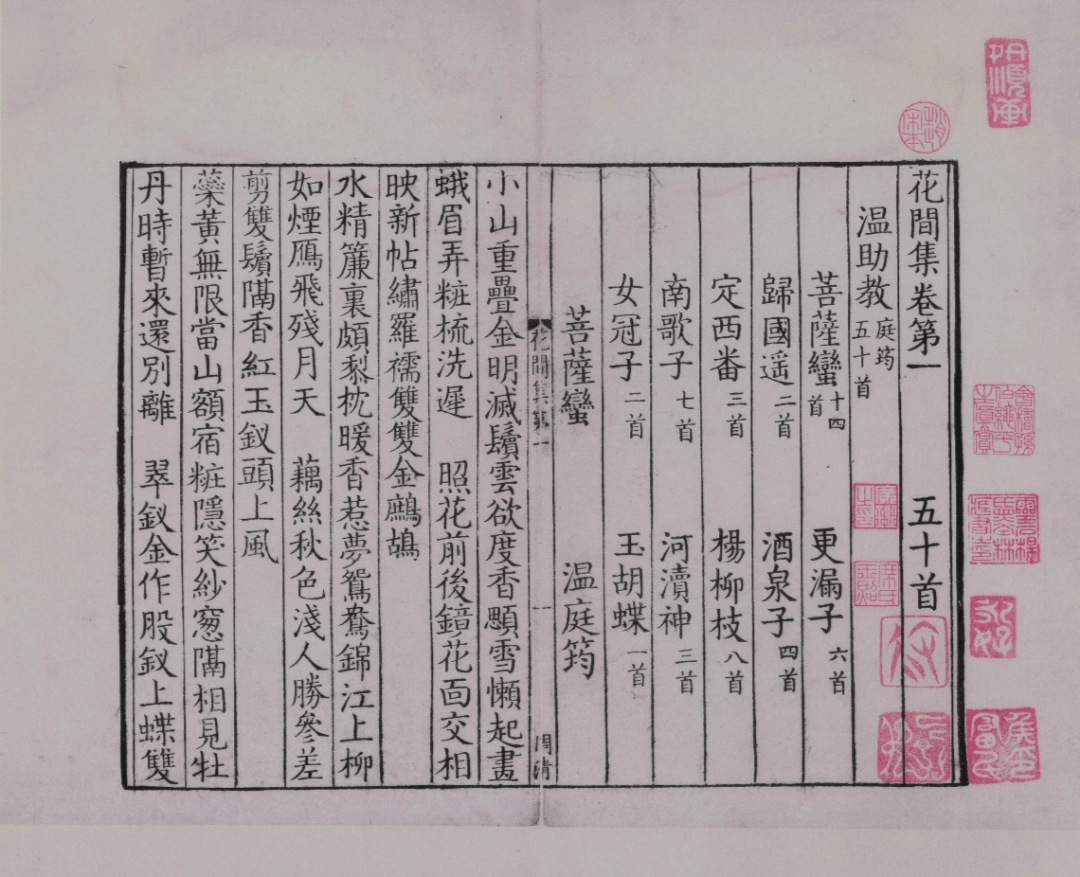 花間集卷第一 五十首
温助教 庭筠 五十首
菩薩蠻 十四首 更漏子 六首
歸國遥 二首 酒泉子 四首
定西番 三首 楊柳枝 八首
南歌子 七首 河瀆神 三首
女冠子 二首 玉胡蝶 一首
菩薩蠻 温庭筠
花間集第一 一
小山重疊金明滅鬢雲欲度香顋雪懶起畫
蛾眉弄粧梳洗遲 照花前後鏡花面交相
映新帖繡羅襦雙雙金鷓鴣
水精簾裏頗黎枕暖香惹夢鴛鴦錦江上柳
如煙鴈飛殘月天 藕絲秋色淺人勝參差
剪雙鬢隔香紅玉釵頭上風
蘂黃無限當山額宿粧隱笑紗窻隔相見牡
丹時暫來還別離 翠釵金作股釵上蝶雙